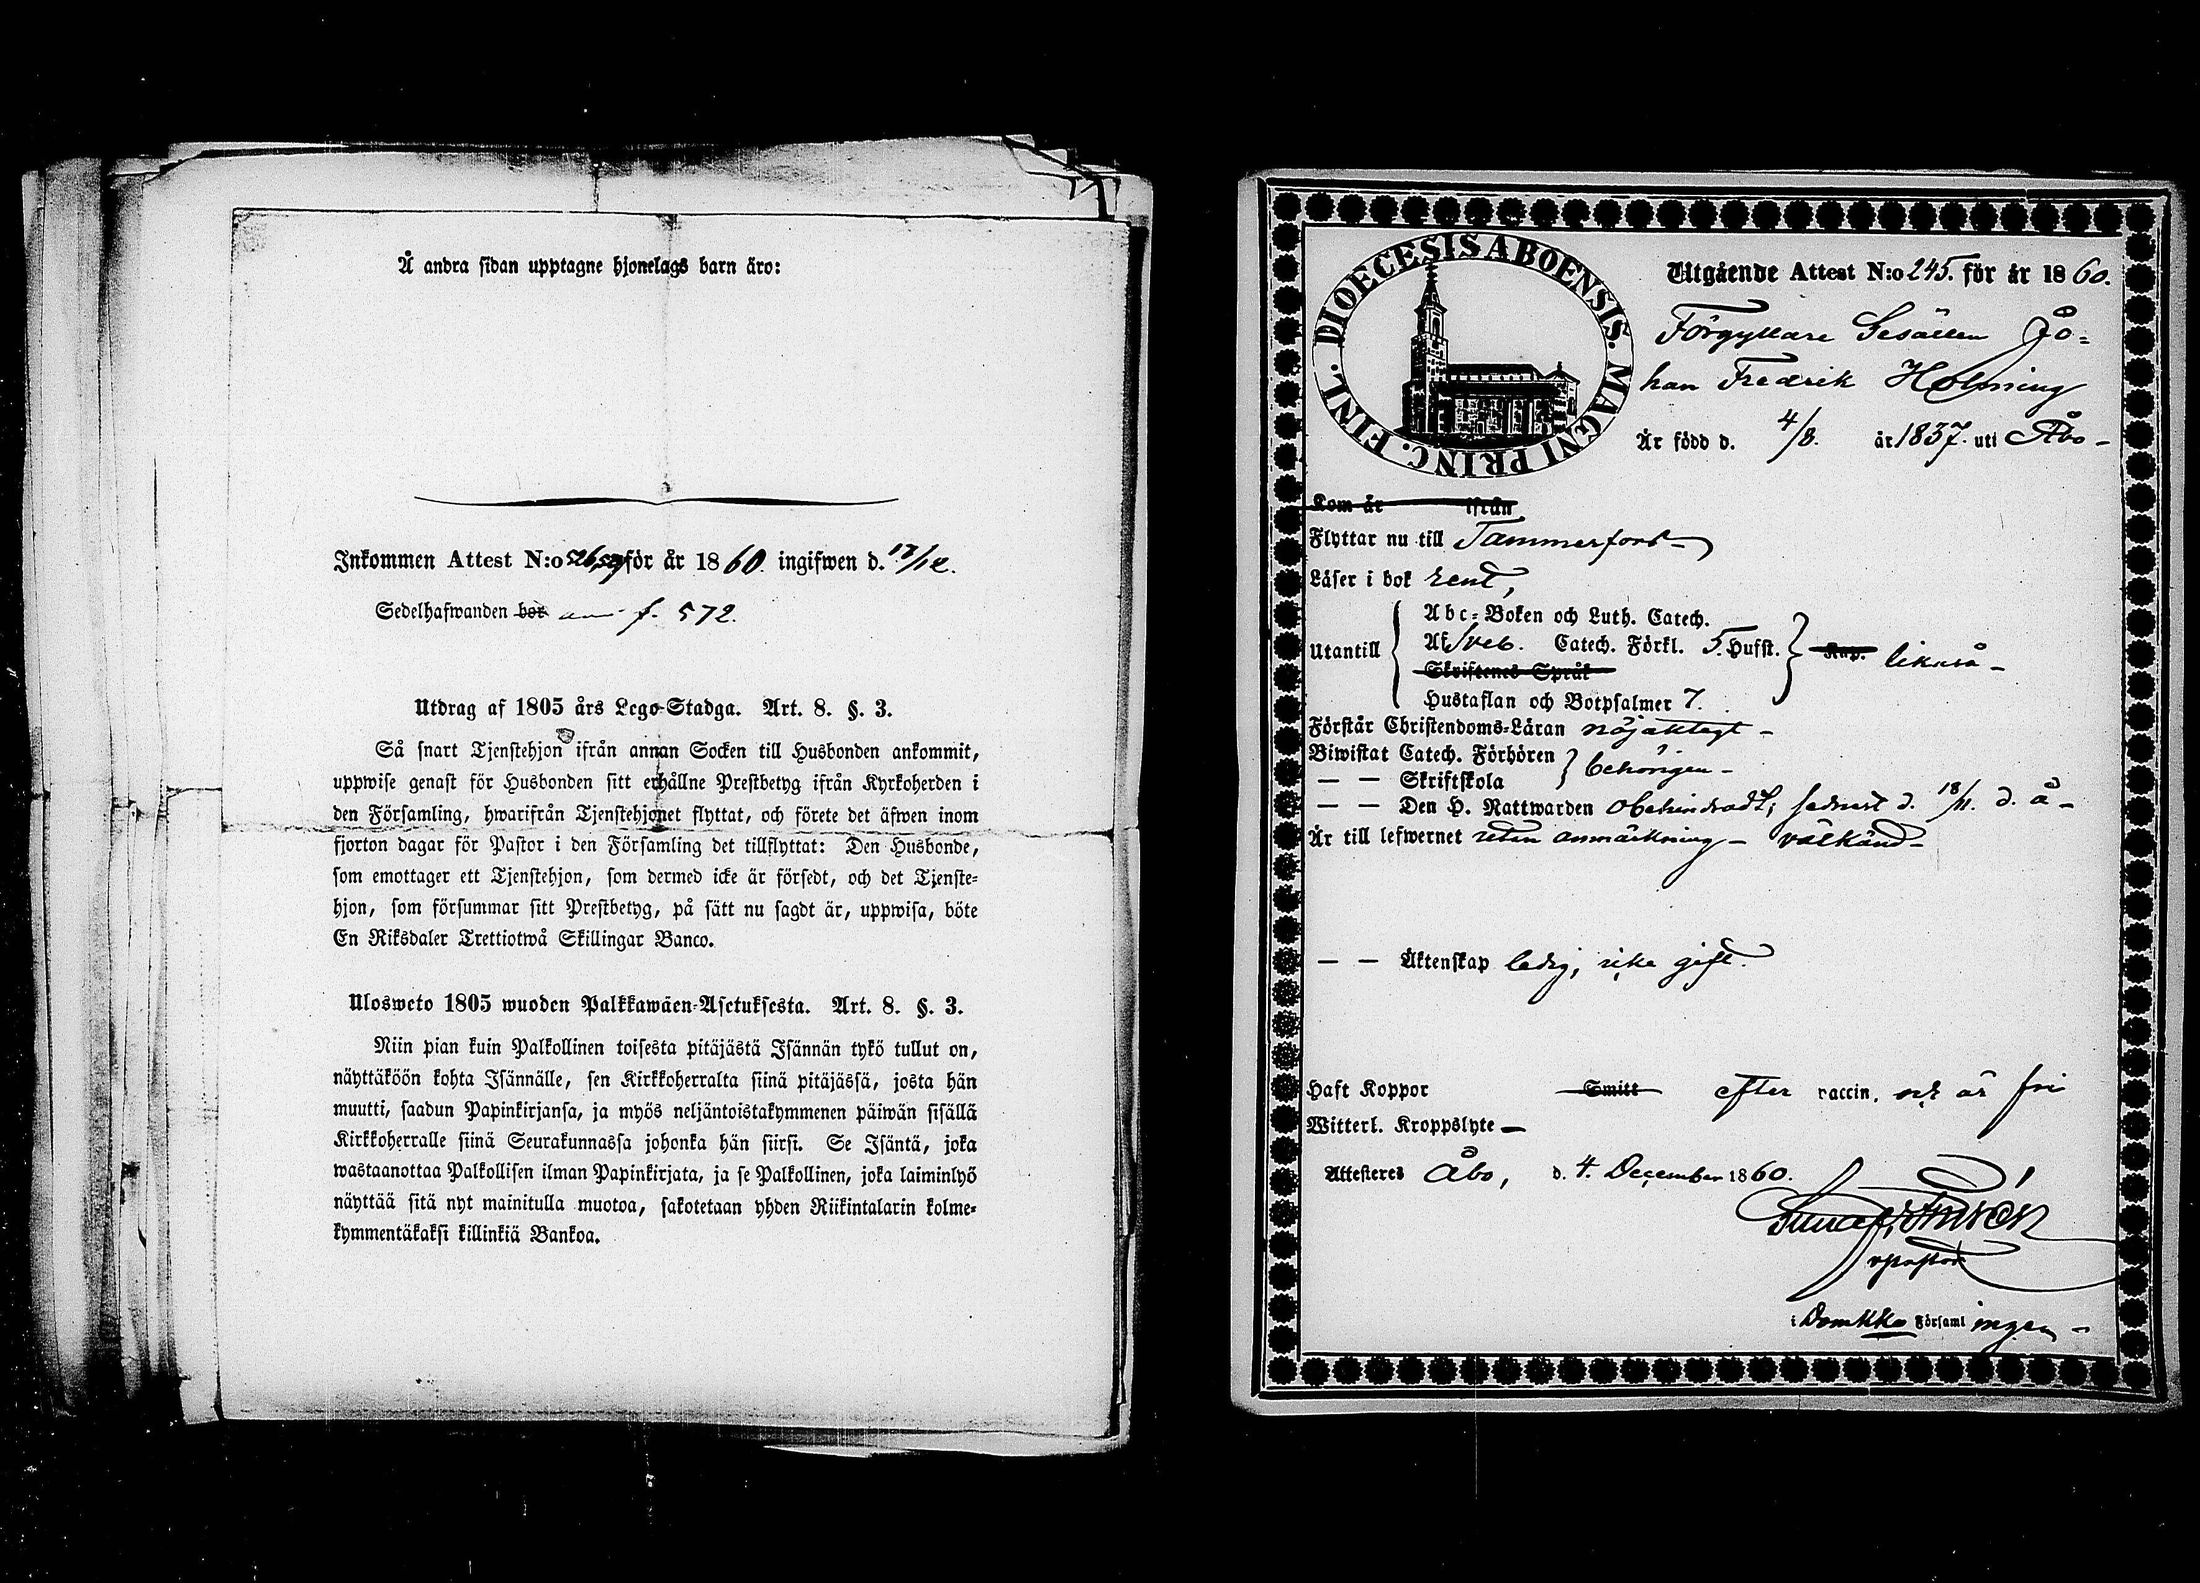 Å andra sidan upptagne hjonelags barn äro:
Inkommen Attest N:o för år 1860. ingifwen d. 13/12.
Sedelhafwanden bor f. 572.
Utdrag af 1805 års Lego-Stadga. Art. 8. §. 3.
Så snart Tjenstehjon ifrån annan Socken till Husbonden ankommit,
uppwise genast för Husbonden sitt erhållne Prestbetyg ifrån Kyrkoherden i
den Församling, hwarifrån Tjenstehjonet flyttat, och förete det äfwen inom
fjorton dagar för Pastor i den Församling det tillflyttat: Den Husbonde,
som emottager ett Tjenstehjon, som dermed icke är försedt, och det Tjenste-
hjon, som försummar sitt Prestbetyg, på sätt nu sagdt är, uppwisa, böte
En Riksdaler Trettiotwå Skillingar Banco.
Ulosweto 1805 wuoden Palkkawäen-Asetuksesta. Art. 8. §. 3.
Niin pian kuin Palkollinen toisesta pitäjästä Isännän tykö tullut on,
näyttäköön kohta Isännälle, sen Kirkkoherralta siinä pitäjässä, josta hän
muutti, saadun Papinkirjansa, ja myös neljäntoistakymmenen päiwän sisällä
Kirkkoherralle siinä Seurakunnassa johonka hän siirsi. Se Isäntä, joka
wastaanottaa Palkollisen ilman Papinkirjata, ja se Palkollinen, joka laiminlyö
näyttää sitä nyt mainitulla muotoa, sakotetaan yhden Riikintalarin kolme-
kymmentäkaksi killinkiä Bankoa.
DIOECESIS ABOENSIS. MAGNI PRINC. FINL.
Utgående Attest N:o 245. för år 1860.
Förgyllare Gesällen Jo-
han Fredrik Holming
Är född d. 4/8. år 1837. uti Åbo-
Kom år ifrån
Flyttar nu till Tammerfors-
Läser i bok rent,
Abc-Boken och Luth. Catech.
Utantill Af Sveb. Catech. Förkl. 5. Hufst. Kap. likaså-
Skriftenes Språk
Hustaflan och Botpsalmer 7.
Förstår Christendoms-Läran nöjaktigt -
Biwistat Catech. Förhören behörigen -
— — Skriftskola
— — Den H. Nattwarden obehindradt; sednast d. 18/11. d. å -
Är till lefwernet utan anmärkning - välkänd -
— — Äktenskap ledig, icke gift.
Haft Koppor Smitt efter vaccin. och är fri
Witterl. Kroppslyte —
Attesteres Åbo, d. 4. December 1860.
vpastor
i Domkko Församl ingen -